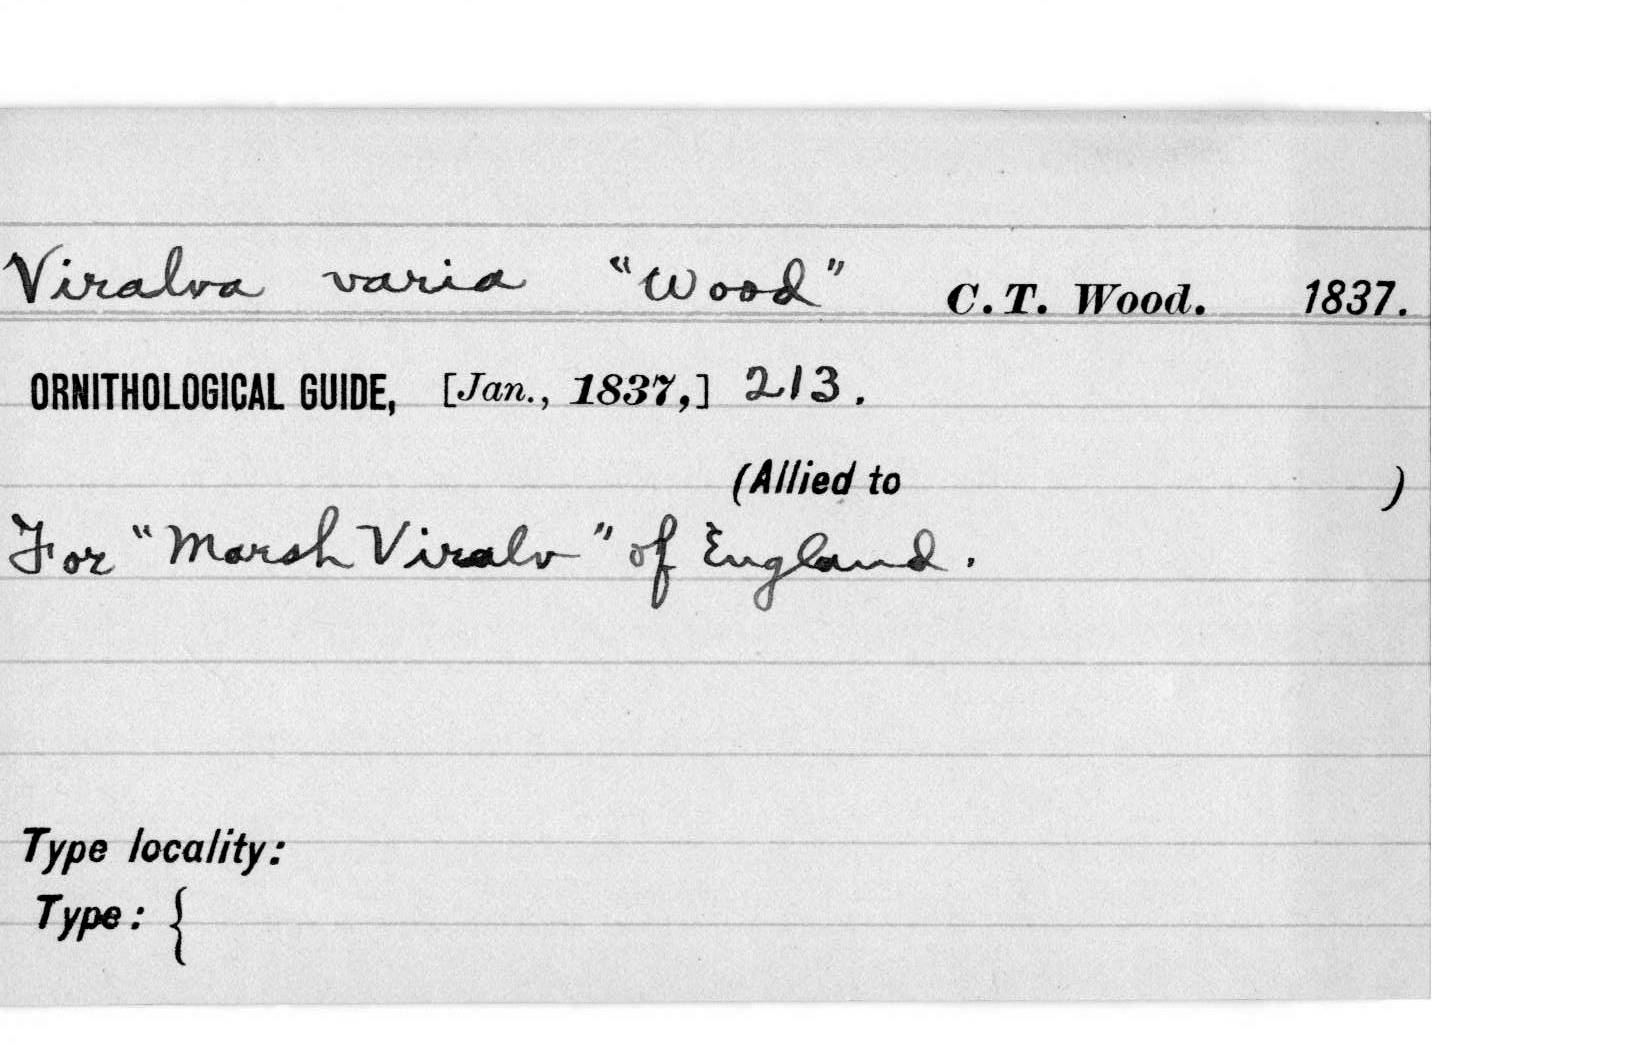 Viralva varia "Wood" C. T. Wood. 1837.
ORNITHOLOGICAL GUIDE, [Jan., 1837,] 213.
(Allied to )
For "Marsh Viralv" of England.
Type locality:
Type: {